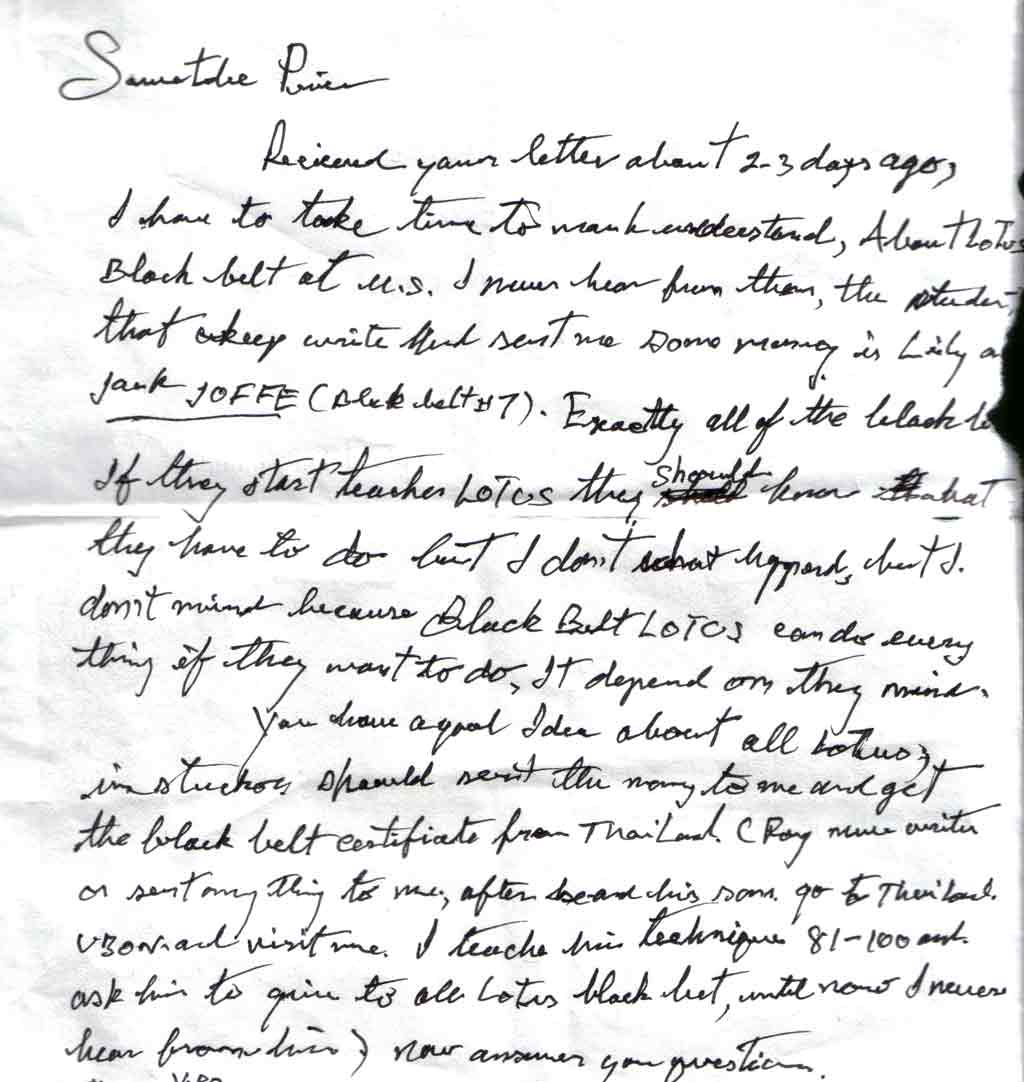 Received your letter about 2-3 days ago,
I have to take time to understand, About Lotus
Black belt at U.S. I never hear from them, the student
that keep write and sent me some money is Lily a
Jack JOFFE (Black belt #7). Exactly all of the black b
If they start teacher LOTUS they should know what
they have to do but I don't what happend, but I.
don't mind because Black Belt LOTUS can do every
thing if they want to do, It depend on they mind.
You have a good Idea about all Lotus,
instuctors should sent the money to me and get
the black belt certificate from Thailand. (Roy never write
or sent any thing to me, after and his son go to Thailand
UBON and visit me. I teache him technique 81-100 and
ask him to give to all Lotus black belt, until now I never
hear from him) now answer you question.